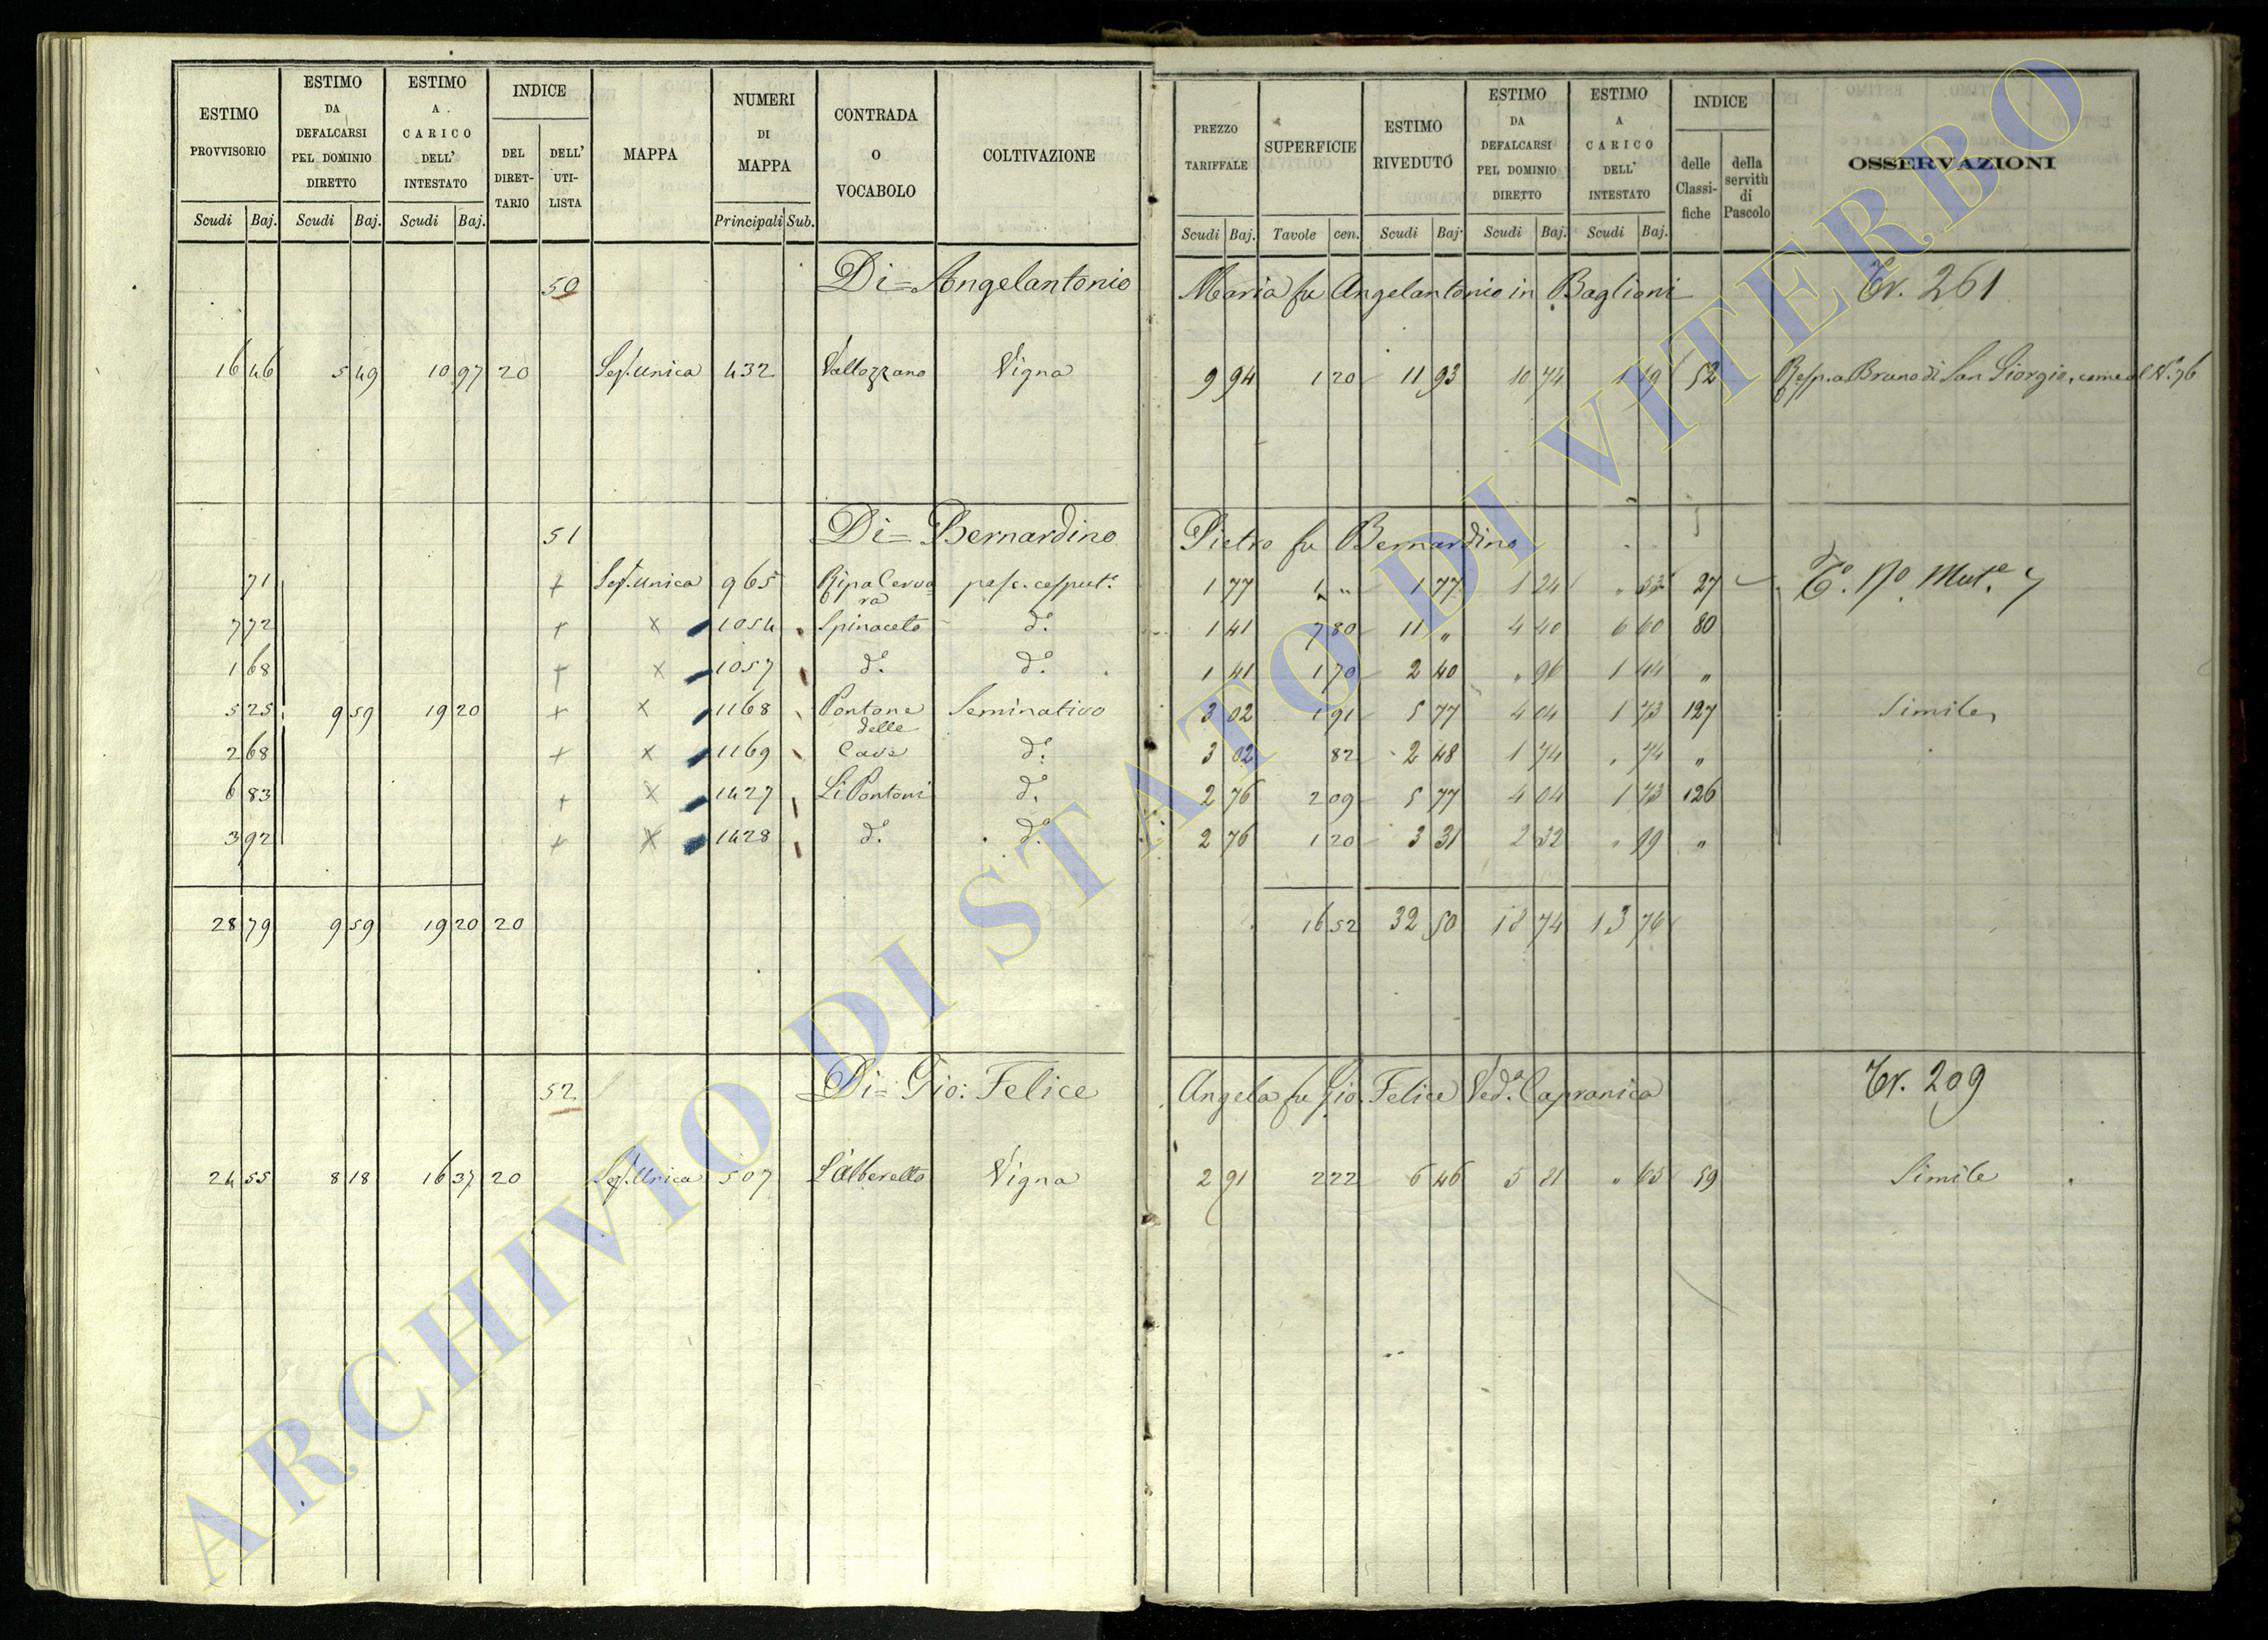 ESTIMO PROVVISORIO | ESTIMO DA DEFALCARSI PEL DOMINIO DIRETTO | ESTIMO A CARICO DELL' INTESTATO | INDICE | MAPPA | NUMERI DI MAPPA | CONTRADA O VOCABOLO | COLTIVAZIONE | PREZZO TARIFFALE | SUPERFICIE | ESTIMO RIVEDUTO | ESTIMO DA DEFALCARSI PEL DOMINIO DIRETTO | ESTIMO A CARICO DELL' INTESTATO | INDICE | OSSERVAZIONI
DEL DIRET-TARIO | DELL' UTI-LISTA | delle Classi-fiche | della servitù di Pascolo
Scudi Baj. | Scudi Baj. | Scudi Baj. | Principali Sub. | Scudi Baj. | Tavole cen. | Scudi Baj. | Scudi Baj. | Scudi Baj.
50 Di= Angelantonio Maria fu Angelantonio in Baglioni Tr. 261
16 46 5 49 10 97 20 Sez. Unica 432 Vallozzano Vigna 9 94 1 20 11 93 10 74 1 19 52 Risp. a Bruno di San Giorgio, come al N.º 76
51 Di= Bernardino Pietro fu Bernardino
71 + Sez. Unica 965 Ripa Cerva= pasc. cesput.º 1 77 1 " 1 77 1 24 " 53 27 T.º Nº Mut.e 7
ra
7 72 + x 1054 Spinaceto d.º 1 41 7 80 11 " 4 40 6 60 80
1 68 + x 1057 d.º d.º 1 41 1 70 2 40 " 96 1 44 "
5 25 9 59 19 20 + x 1168 Pontone Seminativo 3 02 1 91 5 77 4 04 1 73 127 Simile
delle
2 68 + x 1169 Cave d.º 3 02 82 2 48 1 74 " 74 "
6 83 + x 1427 Li Pontoni d.º 2 76 2 09 5 77 4 04 1 73 126
3 92 + x 1428 d.º d.º 2 76 1 20 3 31 2 32 " 99 "
28 79 9 59 19 20 20 16 52 32 50 18 74 13 76
52 Di= Gio: Felice Angela fu Gio. Felice Ved.ª Capranica Tr. 209
24 55 8 18 16 37 20 Sez. Unica 507 L'Alberetto Vigna 2 91 2 22 6 46 5 81 " 65 59 Simile
ARCHIVIO DI STATO DI VITERBO